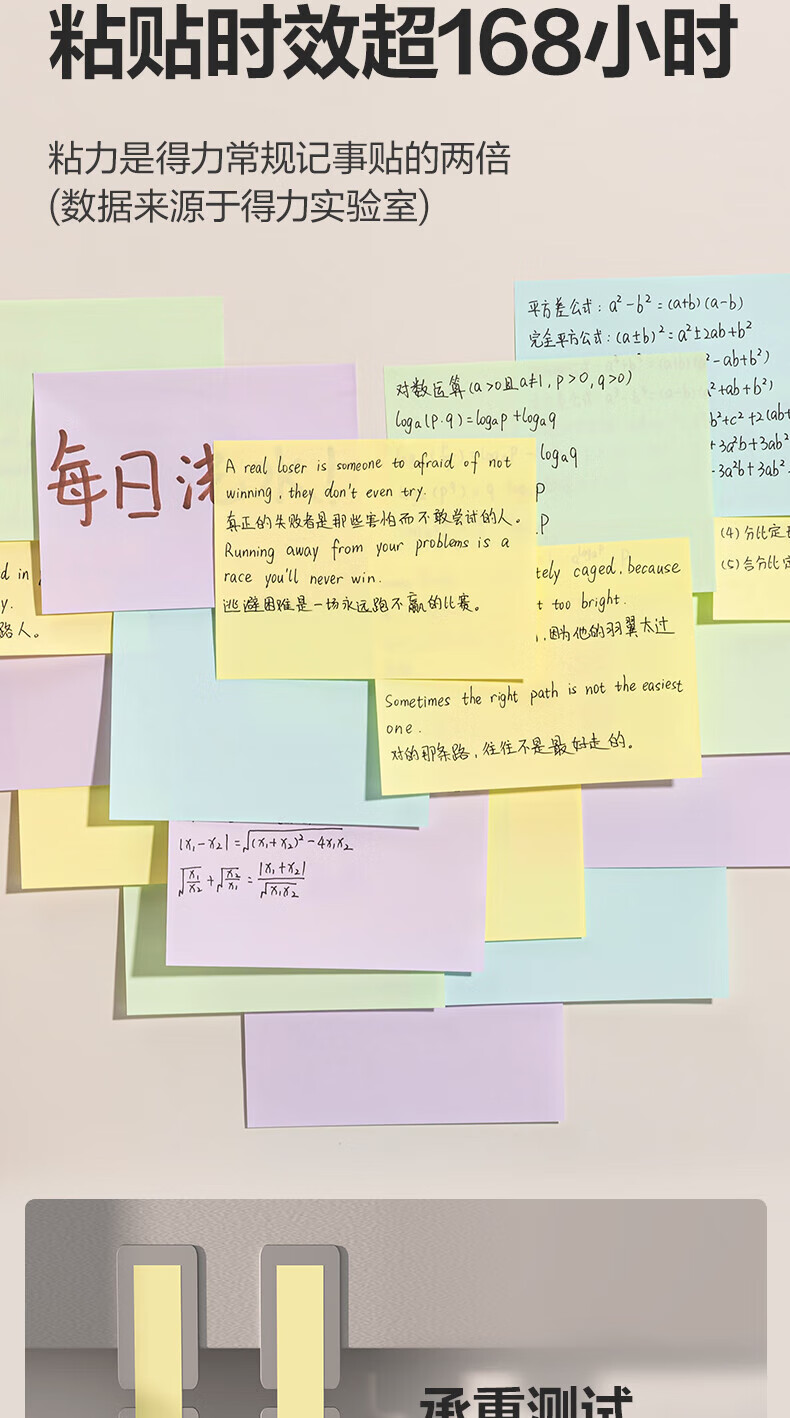 粘贴时效超168小时
粘力是得力常规记事贴的两倍
(数据来源于得力实验室)
平方差公式：a²-b²=(a+b)(a-b)
完全平方公式：(a±b)²=a²±2ab+b²
-ab+b²)
+ab+b²)
b²+c²+2(ab+
+3a²b+3ab²
-3a²b+3ab²
对数运算(a>0且a≠1,p>0,q>0)
logₐ(p·q)=logₐp+logₐq
logₐq
p
p
每日
A real loser is someone to afraid of not
winning, they don't even try.
真正的失败者是那些害怕而不敢尝试的人。
Running away from your problems is a
race you'll never win.
逃避困难是一场永远跑不赢的比赛。
(4)分比定
(5)合分比定
d in
y.
路人。
tely caged, because
t too bright.
,因为他的羽翼太过
Sometimes the right path is not the easiest
one.
对的那条路，往往不是最好走的。
|x₁-x₂|=√(x₁+x₂)²-4x₁x₂
√x₁/x₂+√x₂/x₁=|x₁+x₂|/√x₁x₂
承重测试